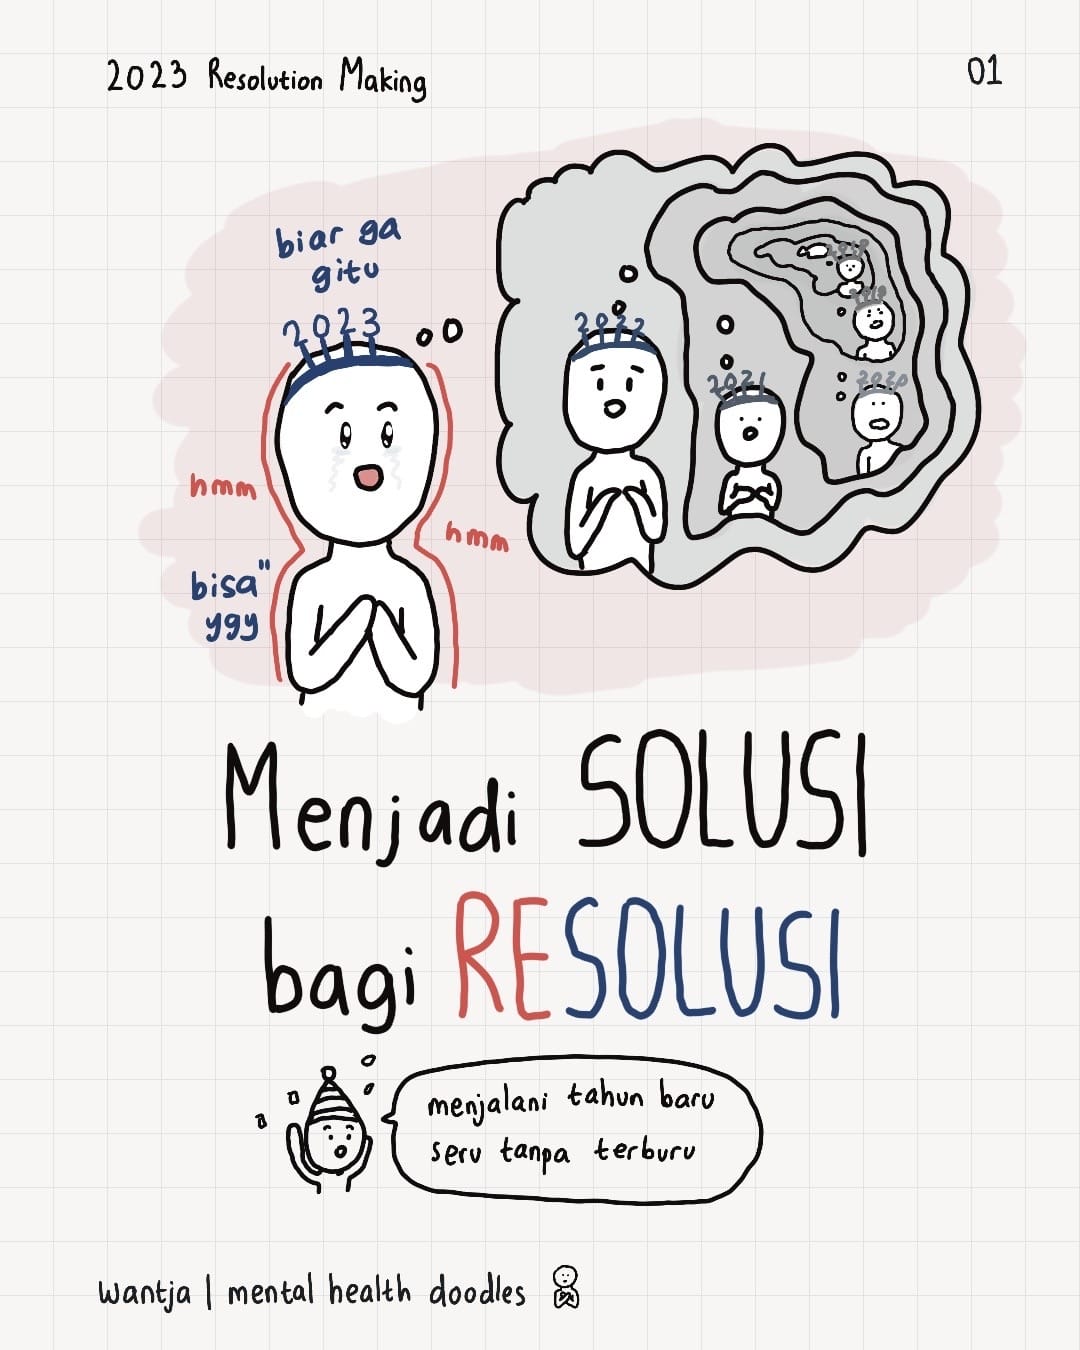 2023 Resolution Making
01
biar ga
gitu
2023
2022
2021
2020
hmm
hmm
bisa"
ygy
Menjadi SOLUSI
bagi RESOLUSI
menjalani tahun baru
seru tanpa terburu
wantja | mental health doodles